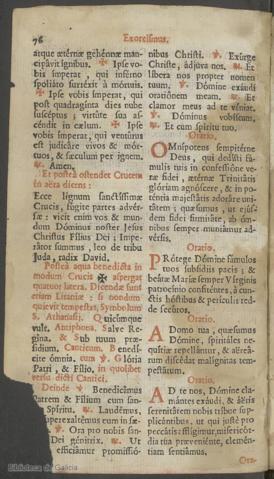 76 Exorcismus.
atque æternæ gehennæ man-
cipávit ignibus. ✠ Ipse vo-
bis imperat, qui inferno
spoliáto surréxit à mórtuis.
✠ Ipse vobis imperat, qui
post quadraginta dies nube
suscéptus; virtúte sua as-
céndit in cælum. ✠ Ipse
vobis imperat, qui ventúrus
est judicáre vivos & mór-
tuos, & sæculum per ignem.
℟. Amen.
Et posteá ostendet Crucem
in aëra dicens:
Ecce lignum sanctíssimæ
Crucis, fúgite partes advér-
sæ: vicit enim vos & mun-
dum Dóminus noster Jesus
Christus Fílius Dei; Impe-
rátor summus, leo de tribu
Juda, radix David.
Posteà aqua benedicta in
modum Crucis ✠ asperget
quatuor latera. Dicendæ sunt
etiam Litaniæ: si nondum
quievit tempestas, Symbolum
S. Athanasij. Quicumque
vult. Antiphona. Salve Re-
gína. & Sub tuum præ-
sídium, Canticum. Benedí-
cite ómnia, cum ℣. Glória
Patri, & Fílio, in quolibet
versu dicti Cantici.
Deinde ℣. Benedicámus
Patrem & Fílium cum san-
Spíritu. ℟. Laudémus,
superexaltémus eum in sæ-
℣. Ora pro nobis san-
Dei génitrix. ℟. Ut
efficiámur promissió-
nibus Christi. ℣. Exúrge
Christe, ádjuva nos. ℟. Et
líbera nos propter nomen
tuum. ℣. Dómine exáudi
oratiónem meam. ℟. Et
clamor meus ad te véniat.
℣. Dóminus vobíscum.
℟. Et cum spíritu tuo.
Oratio.
OMnípotens sempitérne
Deus, qui dedísti fá-
mulis tuis in confessióne ve-
ræ fídei, ætérnæ Trinitátis
glóriam agnóscere, & in po-
téntia majestátis adoráre uni-
tátem; quǽsumus, ut ejús-
dem fídei firmitáte, ab óm-
nibus semper muniámur ad-
vérsis.
Oratio.
PRótege Dómine fámulos
tuos subsídiis pacis; &
beátæ Maríæ semper Vírginis
patrocínio confidéntes, à cun-
ctis hóstibus & perículis red-
de secúros.
Oratio.
A Domo tua, quǽsumus
Dómine, spirituáles ne-
quítiæ repellántur, & aëreá-
rum discédat malígnitas tem-
pestátum.
Oratio.
AD te nos, Dómine cla-
mántes exáudi, & áëris
serenitátem nobis tríbue sup-
plicántibus, ut qui justè pro
peccátis afflígimur, misericór-
dia tua præveniénte, clemén-
tiam sentiámus.
Ora-
Biblioteca de Galicia